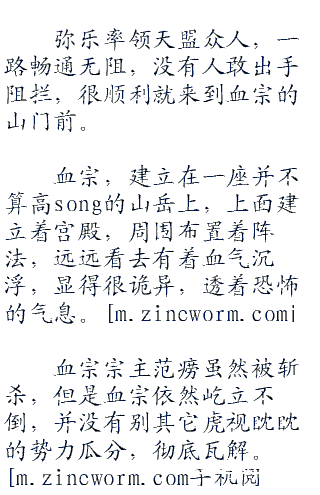 弥乐率领天盟众人，一
路畅通无阻，没有人敢出手
阻拦，很顺利就来到血宗的
山门前。
血宗，建立在一座并不
算高song的山岳上，上面建
立着宫殿，周围布置着阵
法，远远看去有着血气沉
浮，显得很诡异，透着恐怖
的气息。[m.zincworm.com]
血宗宗主范痨虽然被斩
杀，但是血宗依然屹立不
倒，并没有别其它虎视眈眈
的势力瓜分，彻底瓦解。
[m.zincworm.com手机阅